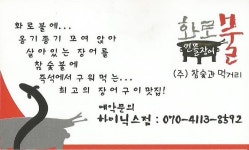 화로불에...
옹기종기 모여 앉아
살아있는 장어를
참숯불에
즉석에서 구워 먹는...
최고의 장어구이 맛집!
화로불
민물장어
(주) 참숯과 먹거리
예약문의
하이닉스점 : 070-4113-8592